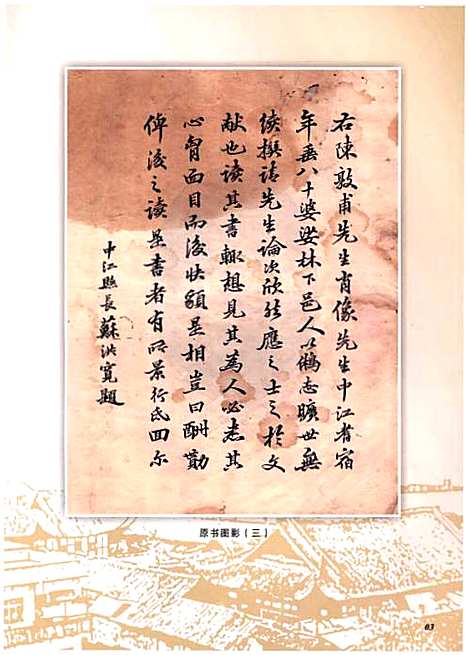 右陳敦甫先生肖像先生中江耆宿
年垂八十婆娑林下邑人以舊志曠世無
续撰請先生論次欣然應之士之於文
献也读其書輒想見其為人必悉其
心胷面目而後快是相豈曰酬勤
俾後之读是書者有所景行氐回尔
中江縣長蘇洪寬題
原书图影（三）
03